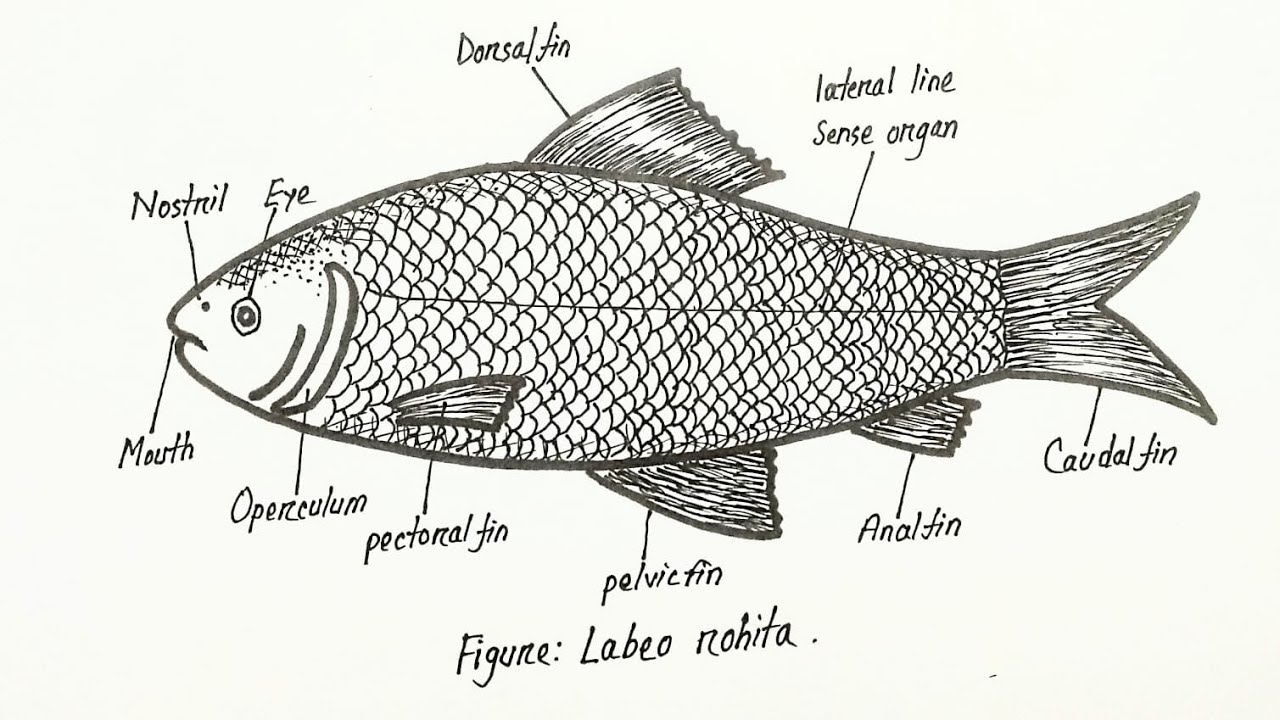 Dorsal fin
lateral line
Sense organ
Nostril
Eye
Mouth
Operculum
pectoral fin
pelvic fin
Anal fin
Caudal fin
Figure: Labeo rohita.